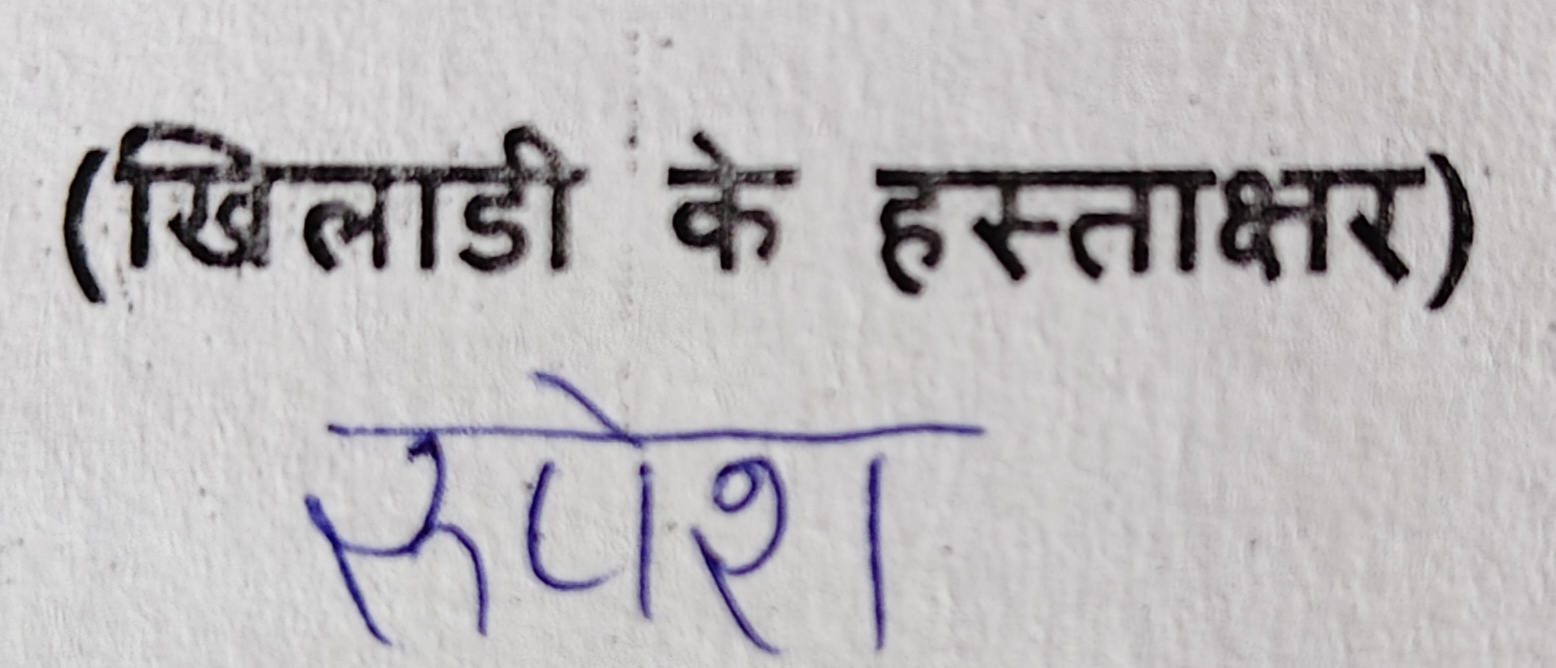 (खिलाडी के हस्ताक्षर)
रूपेश